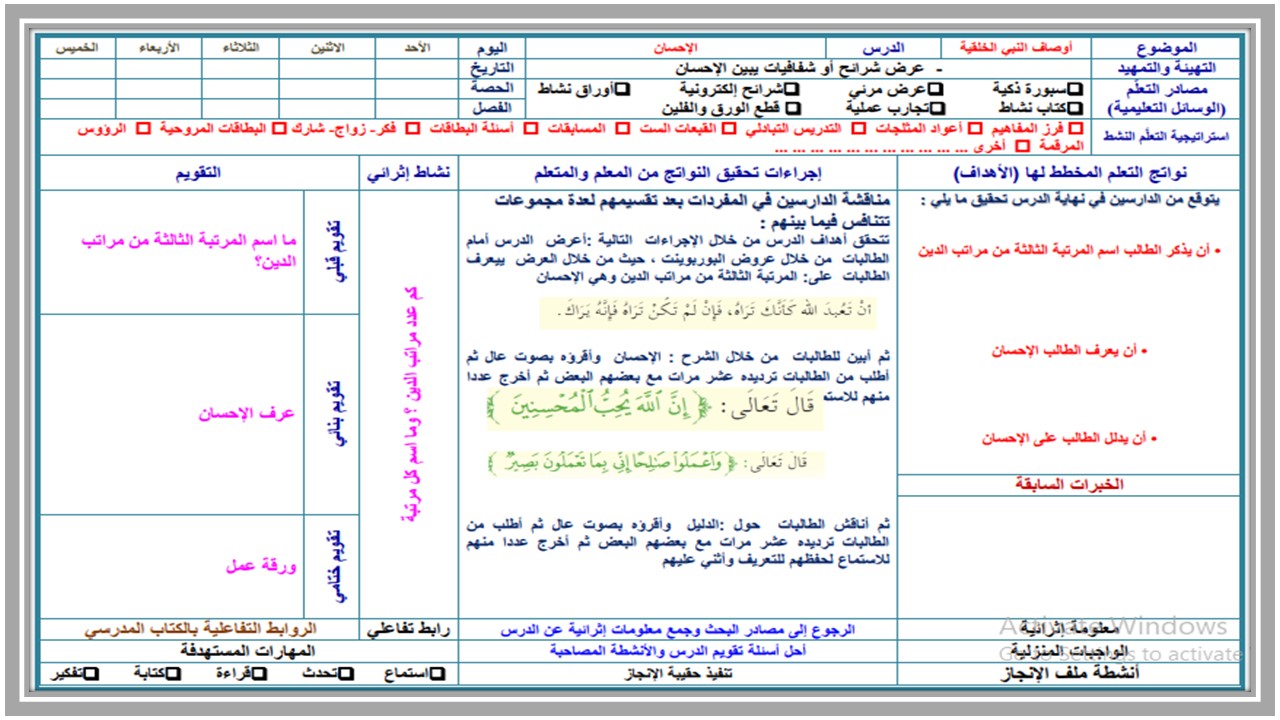 الموضوع أوصاف النبي الخلقية الدرس الإحسان اليوم الأحد الاثنين الثلاثاء الأربعاء الخميس
التهيئة والتمهيد - عرض شرائح أو شفافيات يبين الإحسان التاريخ
مصادر التعلم سبورة ذكية عرض مرئي شرائح إلكترونية أوراق نشاط الحصة
(الوسائل التعليمية) كتاب نشاط تجارب عملية قطع الورق والفلين الفصل
استراتيجية التعلم النشط فرز المفاهيم أعواد المثلجات التدريس التبادلي القبعات الست المسابقات أسئلة البطاقات فكر- زواج- شارك البطاقات المروحية الرؤوس
المرقمة أخرى ... ... ... ... ... ... ... ... ... ... ...
نواتج التعلم المخطط لها (الأهداف) إجراءات تحقيق النواتج من المعلم والمتعلم نشاط إثرائي التقويم
يتوقع من الدارسين في نهاية الدرس تحقيق ما يلي :
• أن يذكر الطالب اسم المرتبة الثالثة من مراتب الدين
• أن يعرف الطالب الإحسان
• أن يدلل الطالب على الإحسان
الخبرات السابقة
مناقشة الدارسين في المفردات بعد تقسيمهم لعدة مجموعات
تتنافس فيما بينهم :
تتحقق أهداف الدرس من خلال الإجراءات التالية :أعرض الدرس أمام
الطالبات من خلال عروض البوربوينت ، حيث من خلال العرض ييعرف
الطالبات على: المرتبة الثالثة من مراتب الدين وهي الإحسان
أنْ تَعْبدَ الله كَأنَّكَ تَرَاهُ، فَإنْ لَمْ تَكُنْ تَرَاهُ فَإنَّهُ يَرَاكَ.
ثم أبين للطالبات من خلال الشرح : الإحسان وأقرؤه بصوت عال ثم
أطلب من الطالبات ترديده عشر مرات مع بعضهم البعض ثم أخرج عددا
منهم للاستم
قَالَ تَعَالَى: ﴿ إِنَّ ٱللَّهَ يُحِبُّ ٱلْمُحْسِنِينَ ﴾
قَالَ تَعَالَى: ﴿ وَٱعْمَلُوا۟ صَـٰلِحًا إِنِّى بِمَا تَعْمَلُونَ بَصِيرٌ ﴾
ثم أناقش الطالبات حول :الدليل وأقرؤه بصوت عال ثم أطلب من
الطالبات ترديده عشر مرات مع بعضهم البعض ثم أخرج عددا منهم
للاستماع لحفظهم للتعريف وأثني عليهم
كم عدد مراتب الدين ؟ وما اسم كل مرتبة
تقويم قبلي
ما اسم المرتبة الثالثة من مراتب
الدين؟
تقويم بنائي
عرف الإحسان
تقويم ختامي
ورقة عمل
معلومة إثرائية الرجوع إلى مصادر البحث وجمع معلومات إثرائية عن الدرس رابط تفاعلي الروابط التفاعلية بالكتاب المدرسي
الواجبات المنزلية أحل أسئلة تقويم الدرس والأنشطة المصاحبة المهارات المستهدفة
أنشطة ملف الإنجاز تنفيذ حقيبة الإنجاز استماع تحدث قراءة كتابة تفكير
Activate Windows
Go to Settings to activate